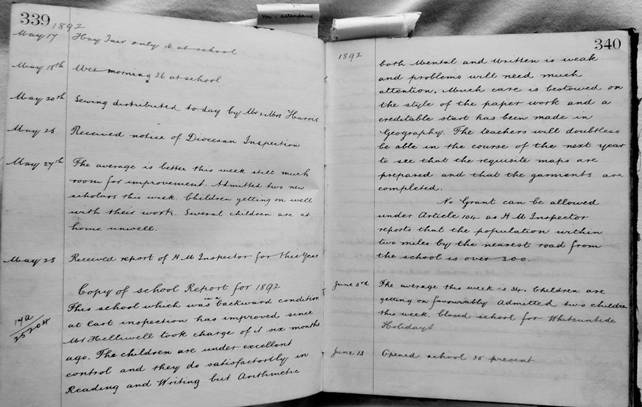 339
1892
May 17 Hay Fair only at school
May 18th Wet morning 26 at school
May 20th Sewing distributed to day by Mrs Harris
May 26 Received notice of Diocesan Inspection
May 27th The average is better this week still much
room for improvement. Admitted two new
scholars this week. Children getting on well
with their work. Several children are at
home unwell.
May 28 Received report of H M Inspector for this Year
Copy of School Report for 1892
This school which was in backward condition
at last inspection has improved since
Mr Helliwell took charge of it six months
ago. The children are under excellent
control and they do satisfactorily in
Reading and Writing but Arithmetic
340
1892
both Mental and Written is weak
and problems will need much
attention. Much care is bestowed on
the style of the paper work and a
creditable start has been made in
Geography. The teachers will doubtless
be able in the course of the next year
to see that the requisite maps are
prepared and that the garments are
completed.
No Grant can be allowed
under Article 104 as H M Inspector
reports that the population within
two miles by the nearest road from
the school is over 300.
June 3rd The average this week is 34. Children are
getting on favourably Admitted two children
this week. Closed school for Whitsuntide
Holidays
June 13 Opened school 35 present